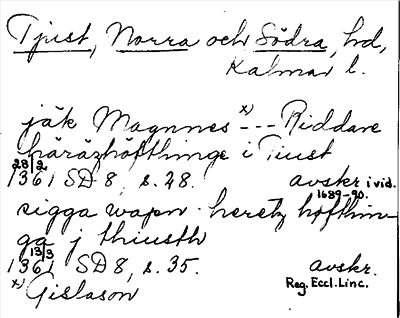 Tjust, Norra och Södra, hd,
Kalmar l.
jäk Magnnes x) --- Riddare
häräzhöfthinge i Tiust
28/2
1361 SD 8, s. 28. avskr i vid.
1689-90.
sigga wapn heretz höfthin
ga j thiusth
13/3
1361 SD 8, s. 35. avskr.
Reg. Eccl. Linc.
x) Gislason